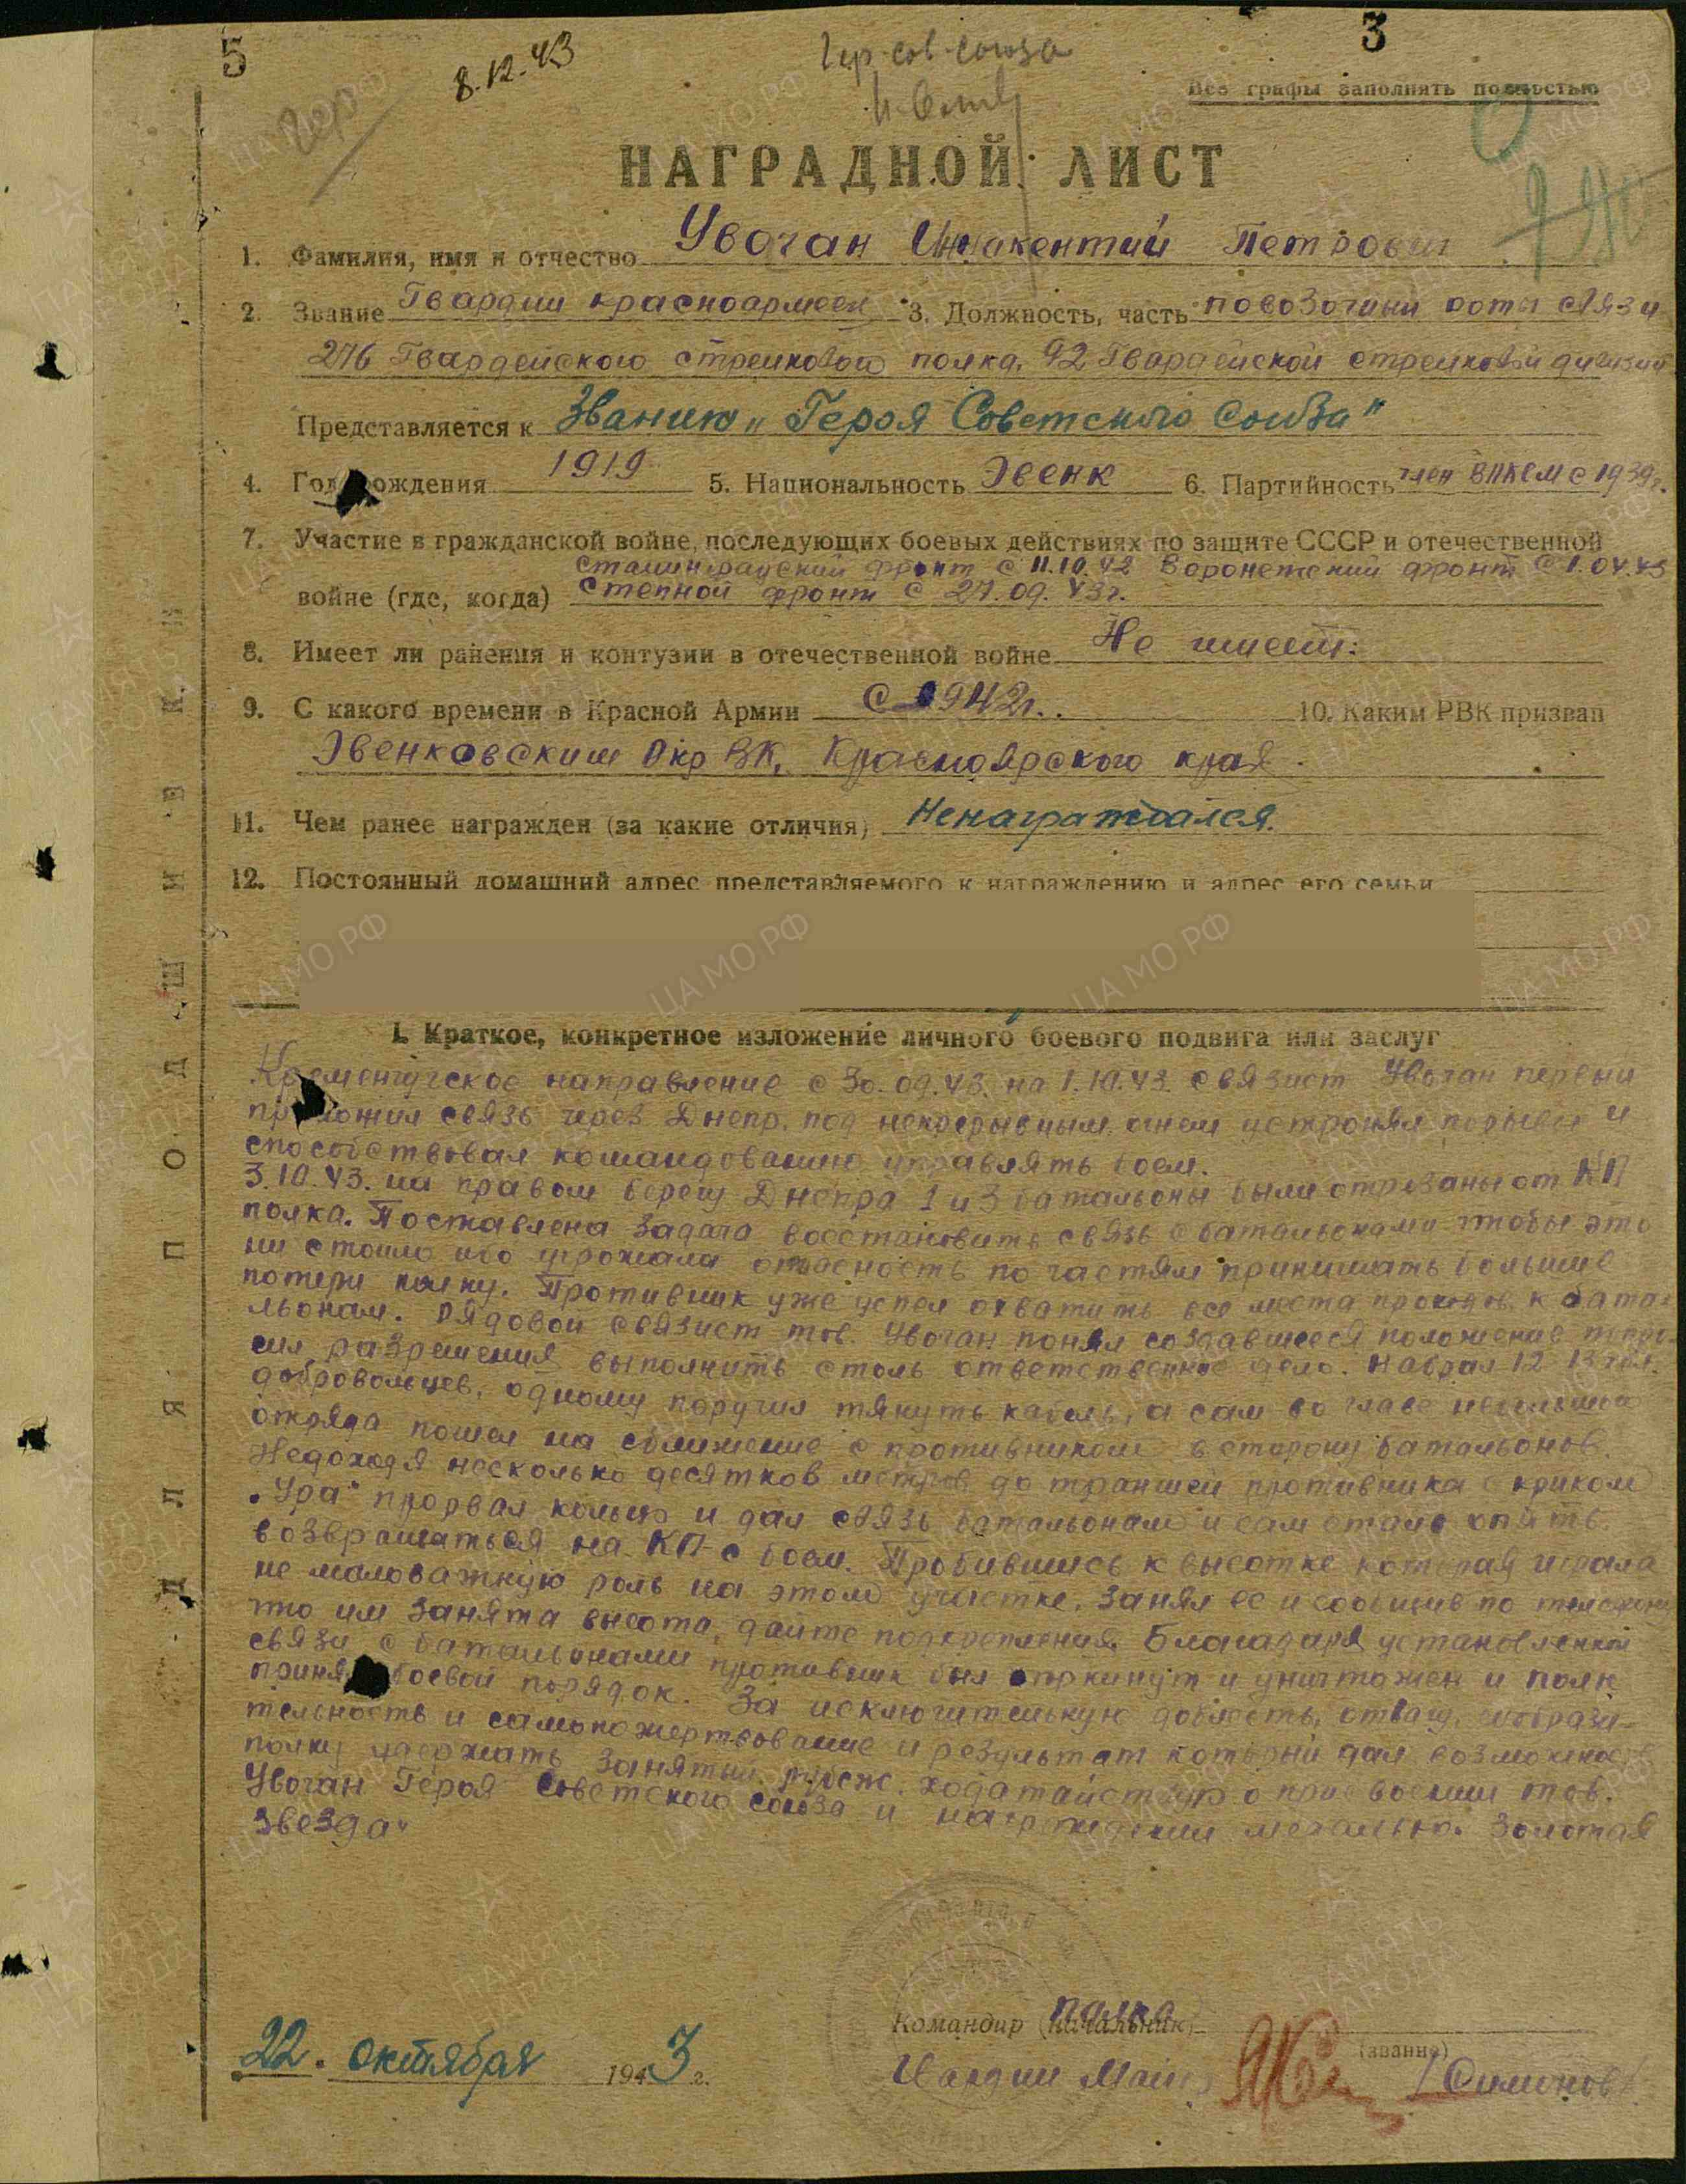 5
3
8.12.43
Гер. Сов. Союза
Гер
Все графы заполнять полностью
НАГРАДНОЙ ЛИСТ
1. Фамилия, имя и отчество Увочан Инакентий Петрович
2. Звание Гвардии красноармеец 3. Должность, часть повозочный роты связи
276 Гвардейского стрелкового полка, 92 Гвардейской стрелковой дивизии
Представляется к Званию „Героя Советского Союза"
4. Год рождения 1919 5. Национальность Эвенк 6. Партийность член ВЛКСМ с 1939г.
7. Участие в гражданской войне, последующих боевых действиях по защите СССР и отечественной
Сталинградский фронт с 11.10.42 Воронежский фронт с 1.04.43
войне (где, когда) Степной фронт с 27.09.43г.
8. Имеет ли ранения и контузии в отечественной войне Не имеет.
9. С какого времени в Красной Армии с 1942г. 10. Каким РВК призван
Эвенковским Окр ВК, Красноярского края
11. Чем ранее награжден (за какие отличия) Ненаграждался.
12. Постоянный домашний адрес представляемого к награждению и адрес его семьи
I. Краткое, конкретное изложение личного боевого подвига или заслуг
Кременчугское направление с 30.09.43. на 1.10.43. связист Увочан первый
проложил связь через Днепр. под непрерывным огнем устронял порывы и
способствовал командованию управлять боем.
3.10.43. на правом берегу Днепра 1 и 3 батальоны были отрезаны от КП
полка. Поставлена задача восстановить связь с батальонами чтобы это
ни стоило ибо угрожала опасность по частям принимать большие
потери полку. Противник уже успел охватить все места проходов к бата-
льонам. Рядовой связист тов. Увочан понял создавшееся положение попро-
сил разрешения выполнить столь ответственное дело. Набрал 12 13 чел.
добровольцев, одному поручил тянуть кабель, а сам во главе небольшого
отряда пошел на сближение с противником в сторону батальонов.
Недоходя несколько десятков метров до траншей противника с криком
„Ура" прорвал кольцо и дал связь батальонам и сам стал опять
возвращаться на КП с боем. Пробившись к высотке которая играла
не маловажную роль на этом участке. Занял ее и сообщив по телефону
что им занята высота, дайте подкрепления. Благодаря установленной
связи с батальонами противник был опркинут и уничтожен и полк
принял боевой порядок. За исключительную доблесть, отвагу, сообрази-
тельность и самопожертвование и результат который дал возможность
полку удержать занятый рубеж. ходатайствую о присвоении тов.
Увочан Героя Советского Союза и награждении медалью. Золотая
Звезда"
22. октября 1943 г.
Командир (начальник) полка
(звание)
Гвардии Майор /Симонов/
ДЛЯ ПОДШИВКИ
ЦА МО РФ
ПАМЯТЬ НАРОДА